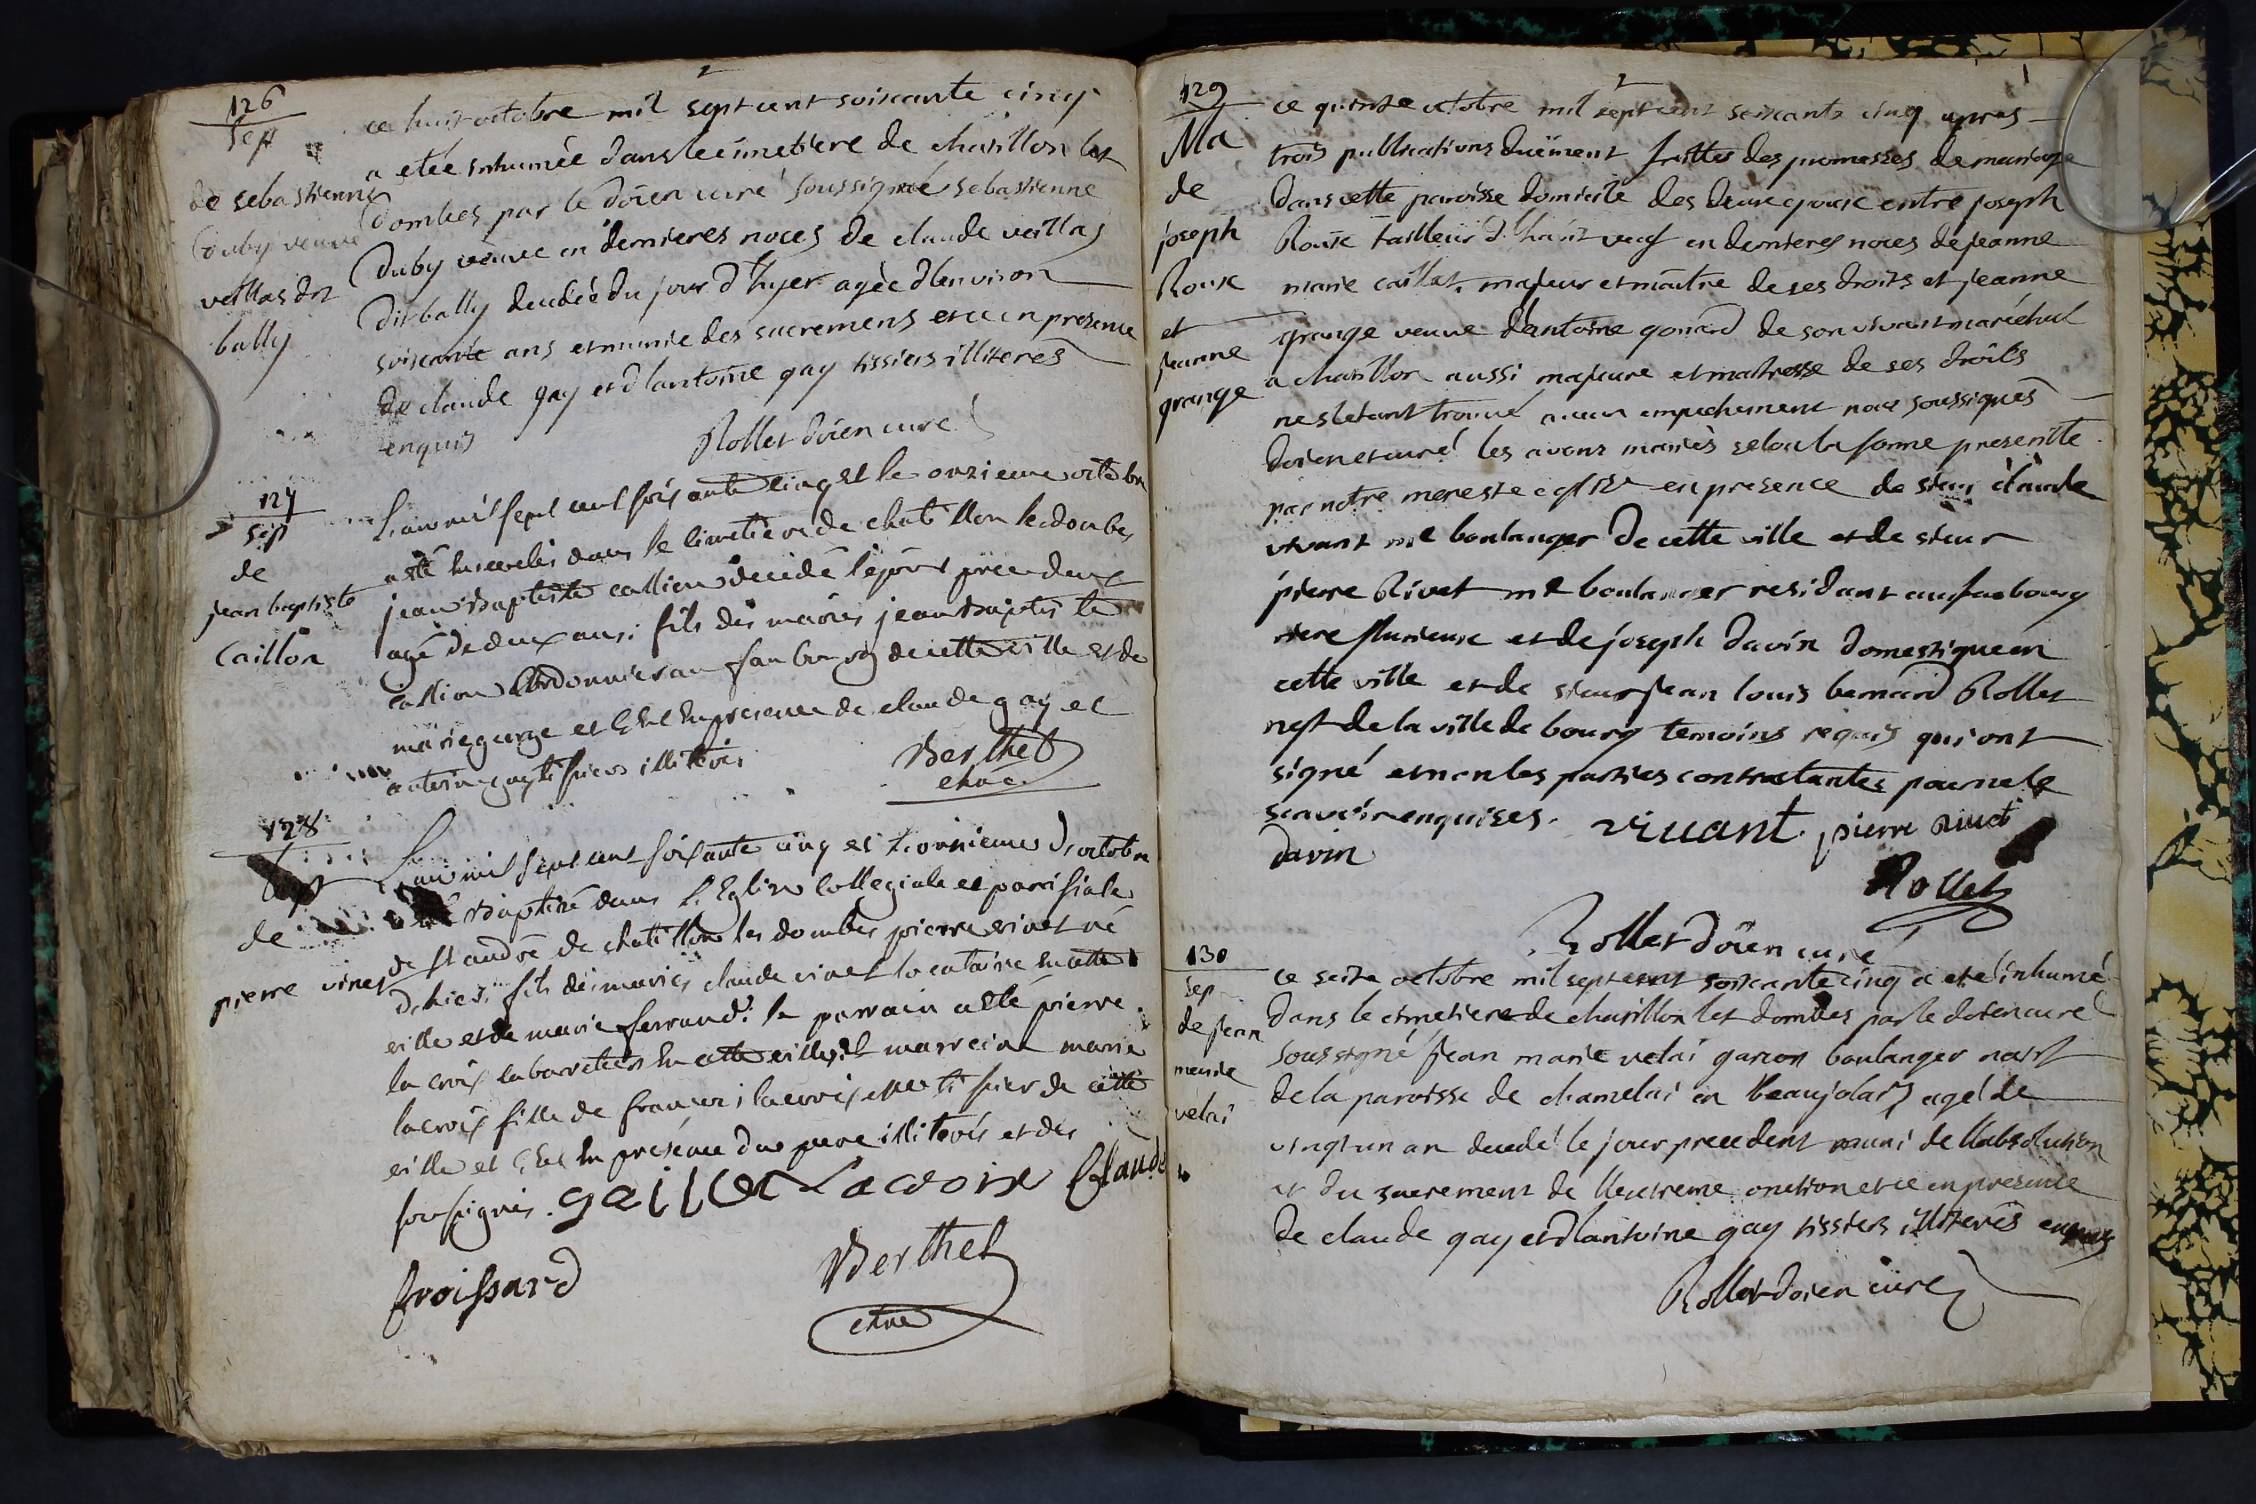 126
sep
de sebastienne
Duby veuve
veillas dit
bally
ce huit octobre mil sept cent soixante cinq
a etée inhumée dans le cimetiere de chatillon les
Dombes par le doïen curé soussigné sebastienne
Duby veuve en dernieres noces de claude veillas
dit bally decedée du jour d'hyer agée d'environ
soixante ans et munie des sacremens et ce en presence
de claude gay et d'antoine gay tissiers illiterés
enquis Rollet doïen curé
127
sep
de
jean baptiste
Caillon
L'an mil sept cent soixante cinq et le onzieme octobre
a été ensevelis dans le cimetiere de chatillon les dombes
jean baptiste callion décédé le jour precedent
agé de deux ans fils des mariés jean baptiste
callion cordonnier au fauboug de cette ville et de
marie george et c'est en presence de claude gay et
antoine gay tissiers illiterés
Berthet
128
Bapt
de
pierre vinet
L'an mil sept cent soixante cinq et l'onzieme d'octobre
a été baptisé dans l'Eglise collegiale et paroissiale
de st andré de chatillon les dombes pierre vinet né
d'hier fils des mariés claude vinet locataire en cette
ville et de marie ferrand: le parrain a été pierre
la croix cabaretiers en cette ville et marreine marie
lacroix fille de françois lacroix tissier de cette
ville et c'est en présence du pere illiterés et des
soussignés. gaillet Lacroix Claude
froissard Berthet
129
Ma
de
joseph
Roux
et
jeanne
grange
ce quinze octobre mil sept cent soixante cinq apres
trois publications duëment faittes des promesses de mariage
dans cette paroisse domicile des deux epoux entre joseph
Roux tailleur d'habit veuf en dernieres noces de jeanne
marie caillat, majeur et maitre de ses droits et jeanne
grange veuve d'antoine gonard de son vivant maréchal
a chatillon aussi majeure et maitresse de ses droits
ne s'etant trouvé aucun empechement nous soussignés
doïen et curé les avons mariés selon la forme prescritte
par notre mere ste eglise en presence de sieur claude
vivant me boulanger de cette ville et de sieur
pierre Rivet me boulanger residant au faubourg
et de joseph davin domestique en
cette ville et de sieur jean louis bernard Rollet
negt de la ville de bourg temoins requis qui ont
signé et non les parties contractantes pour ne le
scavoir enquises. vivant pierre rivet
davin
Rollet
Rollet doïen curé
130
sep
de jean
marie
velai
ce seize octobre mil sept cent soixante cinq a eté inhumé
dans le cimetiere de chatillon les dombes par le doïen curé
soussigné jean marie velai garcon boulanger natif
de la paroisse de chamelai en beaujolais agé de
vingt un an decedé le jour precedent muni de l'absolution
et du sacrement de l'extreme onction et ce en presence
de claude gay et d'antoine gay tissiers illiterés enquis
Rollet doïen curé